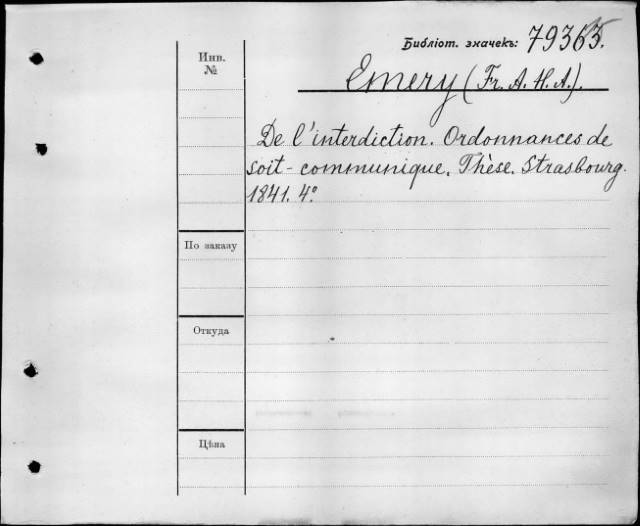 Библіот. значекъ: 79363.
Инв.
№
Emery (Fr. A. H. A.).
De l'interdiction. Ordonnances de
soit-communiqué. Thèse. Strasbourg.
1841. 4º
По заказу
Откуда
Цѣна